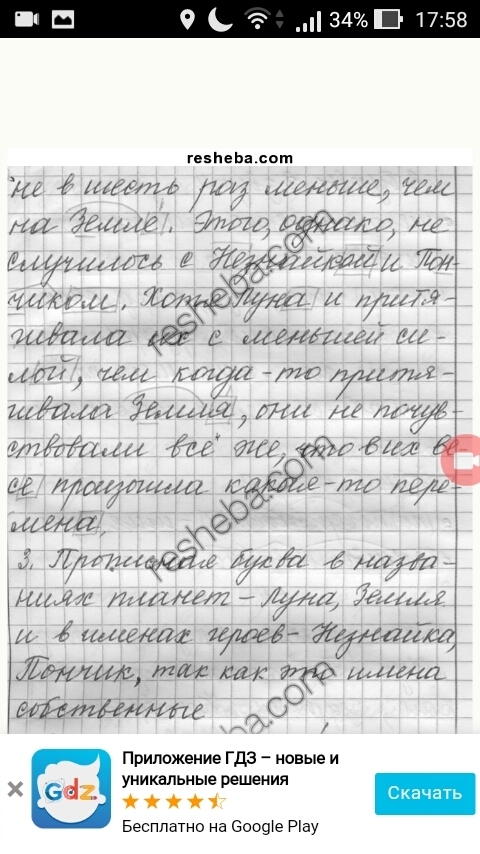 34% 17:58
resheba.com
не в шесть раз меньше, чем
на Земле. Этого, однако, не
случилось с Незнайкой и Пон-
чиком. Хотя Луна и притя-
гивала их с меньшей си-
лой, чем когда-то притя-
гивала Земля, они не почув-
ствовали всё же, что в их ве-
се произошла какая-то пере-
мена.
3. Прописная буква в назва-
ниях планет - Луна, Земля
и в именах героев - Незнайка,
Пончик, так как это имена
собственные
resheba.com
resheba.com
resheba.com
Gdz
Приложение ГДЗ – новые и
уникальные решения
Бесплатно на Google Play
Скачать